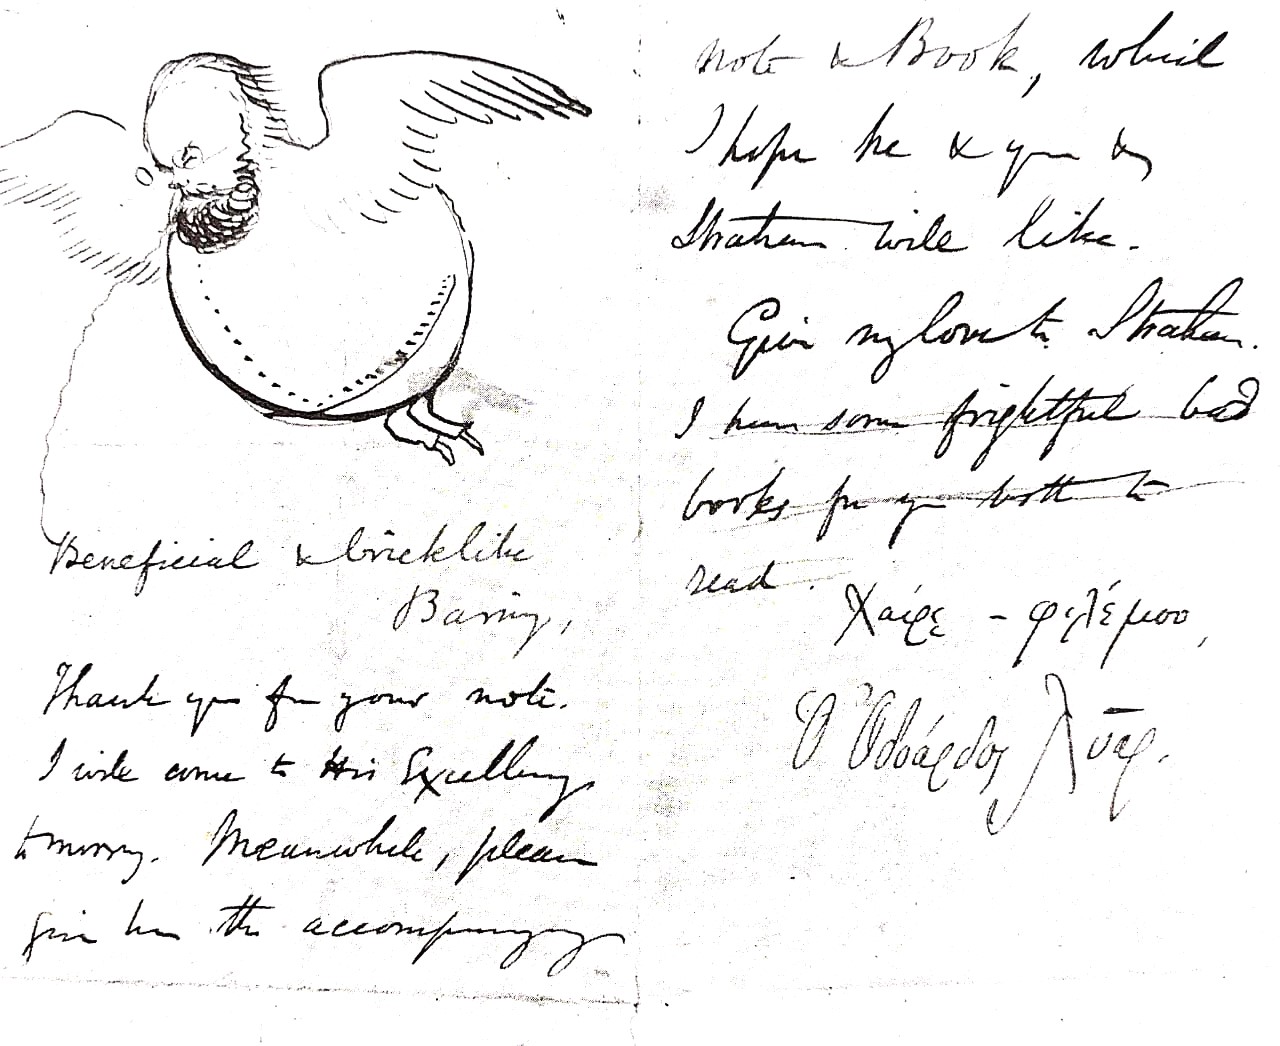 Beneficial & bricklike
Baring,
Thank you for your note.
I will come to His Excellency
tomorrow. Meanwhile, please
give him the accompanying
note & Book, which
I hope he & you &
Strahan will like.
Give my love to Strahan.
I have some frightful bad
books for you both to
read.
Χαίρε – φιλέ μου,
Ὁ Ὀδοάρδος Λύαρ.